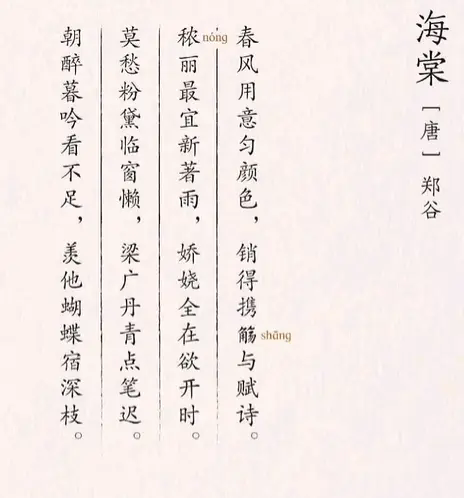 海棠
［唐］郑谷
春风用意匀颜色，销得携觞与赋诗。
shāng
秾丽最宜新著雨，娇娆全在欲开时。
nóng
莫愁粉黛临窗懒，梁广丹青点笔迟。
朝醉暮吟看不足，羡他蝴蝶宿深枝。